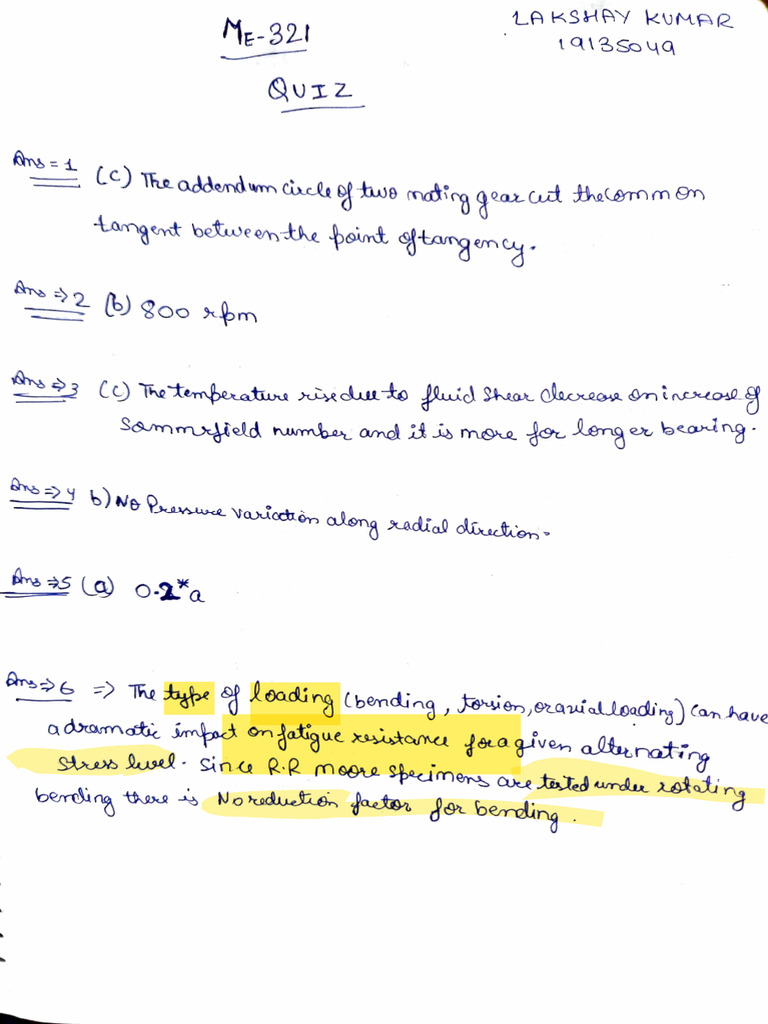 ME-321
LAKSHAY KUMAR
19135049
QUIZ
Ans = 1 (C) The addendum circle of two mating gear cut the common
tangent between the point of tangency.
Ans => 2 (b) 800 rpm
Ans => 3 (C) The temperature rise due to fluid shear decrease on increase of
Sommrfield number and it is more for longer bearing.
Ans => 4 b) No Pressure variation along radial direction.
Ans => 5 (a) 0.2*a
Ans => 6 => The type of loading (bending, torsion, or axial loading) can have
a dramatic impact on fatigue resistance for a given alternating
stress level. Since R.R moore specimens are tested under rotating
bending there is No reduction factor for bending.